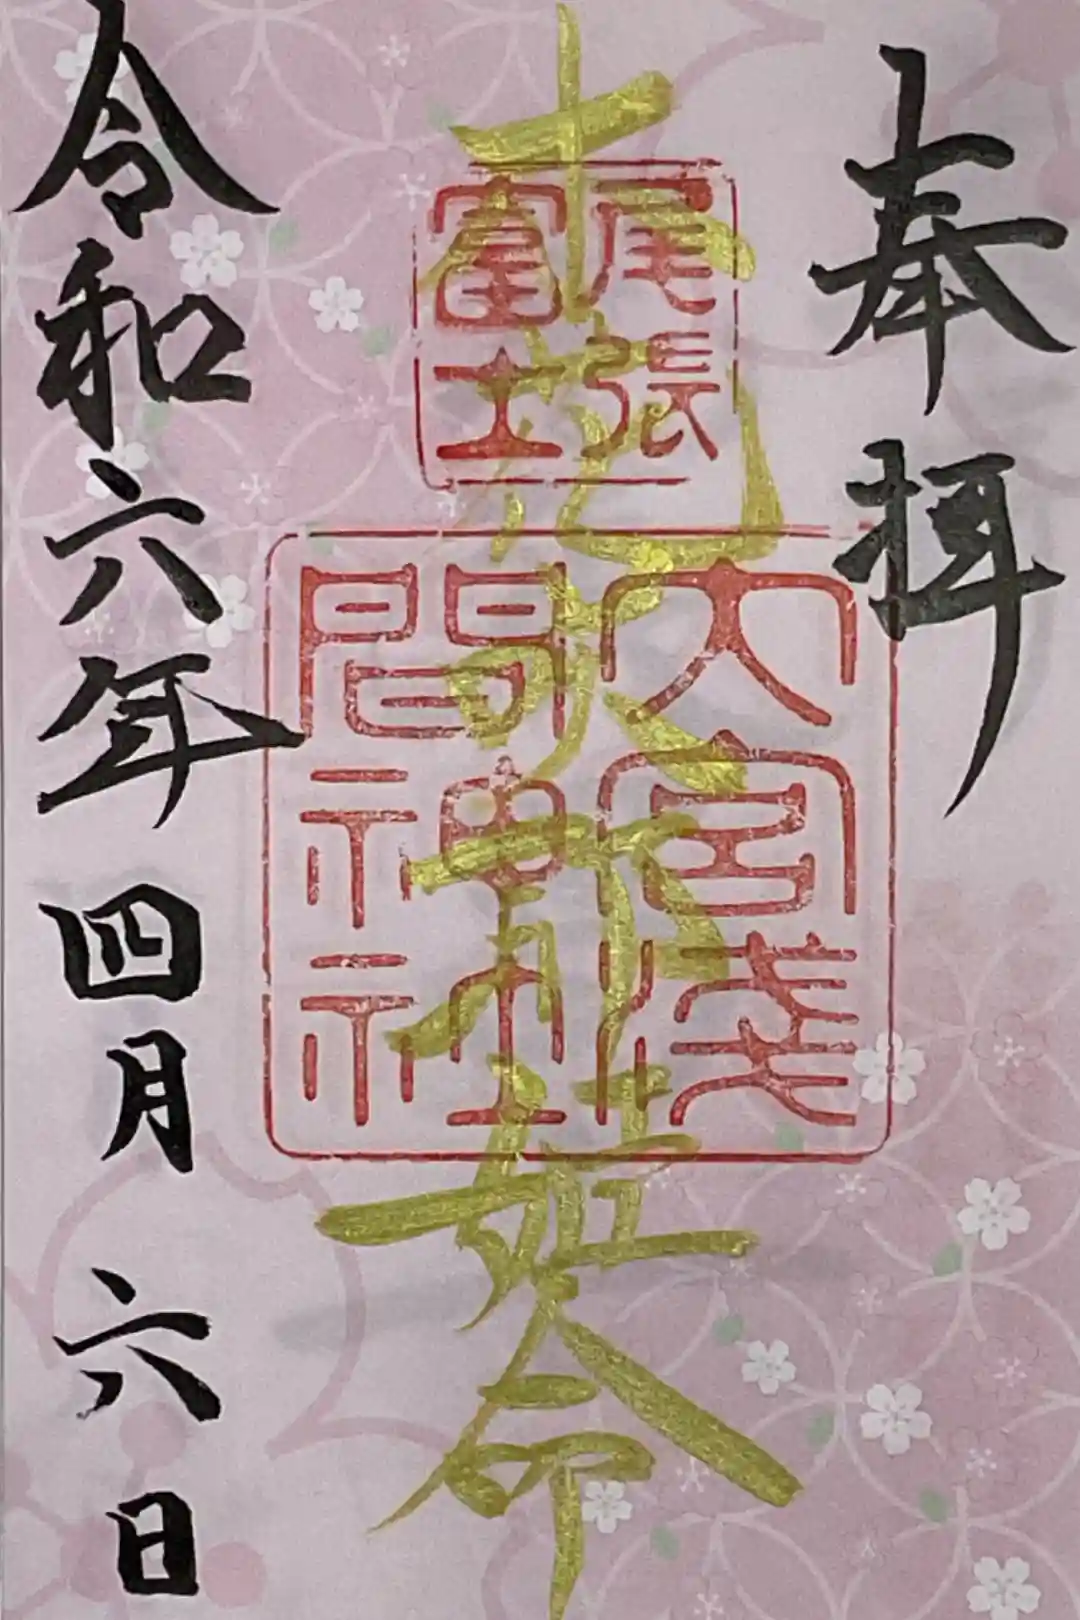 奉拝
尾張
富士
大宮浅
間神社
木花開耶姫命
令和六年四月六日